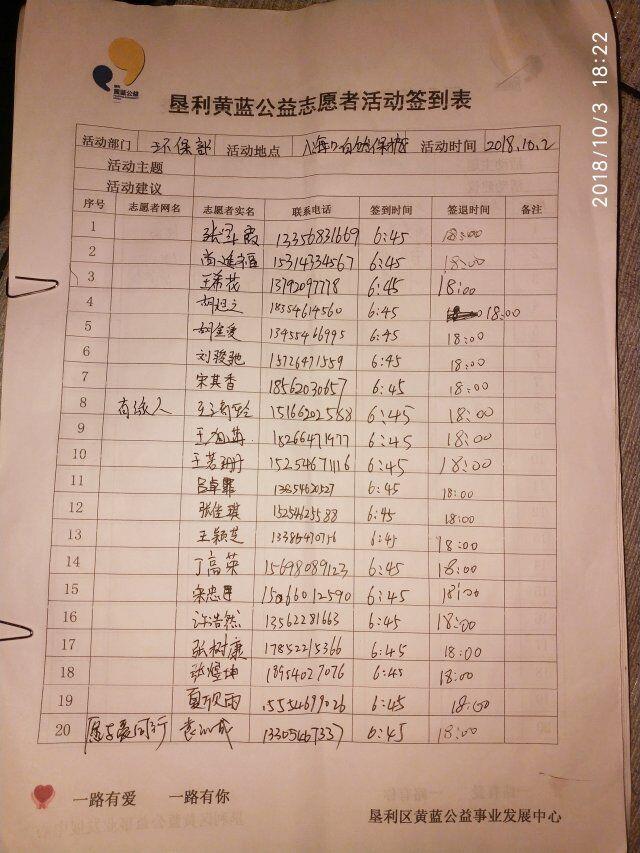 2018/10/3 18:22
黄蓝公益
垦利黄蓝公益志愿者活动签到表
活动部门 环保部 活动地点 自然保护 活动时间 2018.10.2
活动主题
活动建议
序号 志愿者网名 志愿者实名 联系电话 签到时间 签退时间 备注
1 张军霞 13356831669 6:45 18:00
2 15314334567 6:45 18:00
3 王希花 13792097778 6:45 18:00
4 18354614560 6:45 18:00
5 13455466995 6:45 18:00
6 刘骏驰 15726471559 6:45 18:00
7 宋其香 18562030657 6:45 18:00
8 有缘人 15166202588 6:45 18:00
9 18266471977 6:45 18:00
10 15254671116 6:45 18:00
11 吕卓霏 13854620527 6:45 18:00
12 张佳琪 15254125588 6:45 18:00
13 王颖芝 13385470756 6:45 18:00
14 丁高英 15698089123 6:45 18:00
15 6:45 18:00
16 许浩然 13562281663 6:45 18:00
17 张树廉 17852215366 6:45 18:00
18 张煜坤 18954027076 6:45 18:00
19 15554699026 6:45 18:00
20 13305467337 6:45 18:00
一路有爱 一路有你
垦利区黄蓝公益事业发展中心